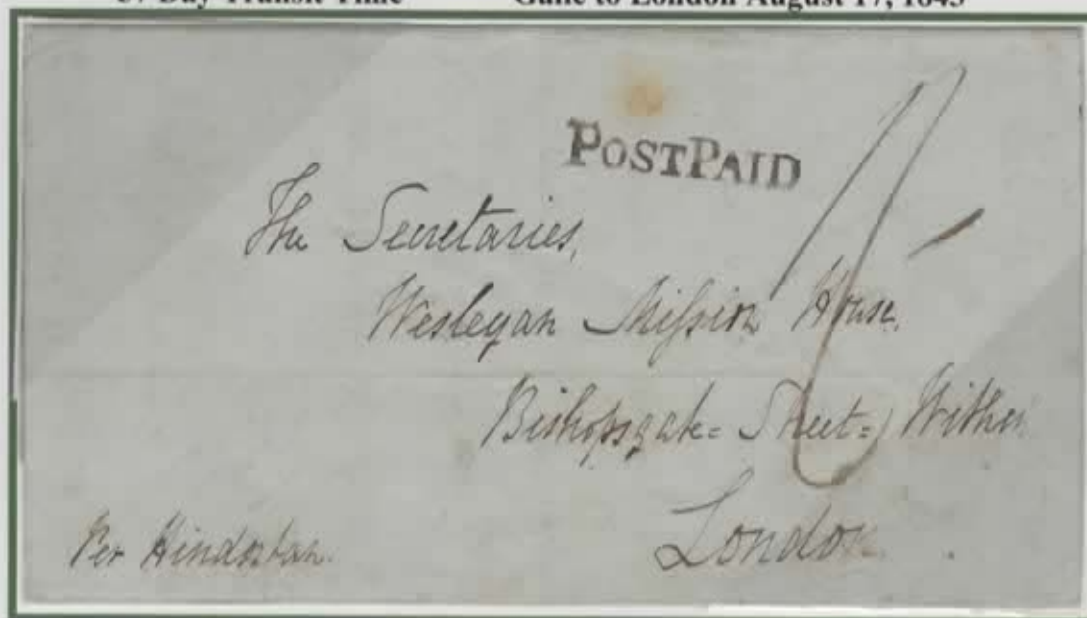 Day Transit Time Galle to London August 17, 1845
POSTPAID
The Secretaries,
Wesleyan Mission House.
Bishopsgate = Street = Within
London.
Per Hindostan.